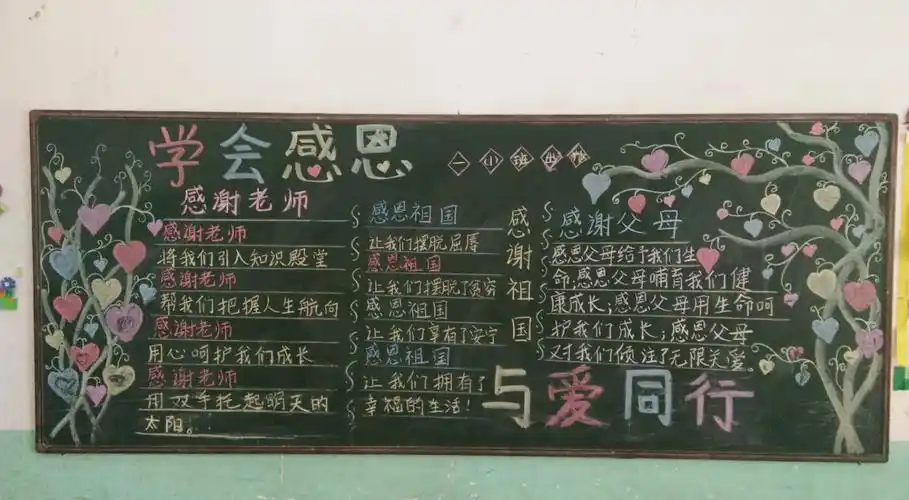 学会感恩
感谢老师
感谢老师
将我们引入知识殿堂
感谢老师
帮我们把握人生航向
感谢老师
用心呵护我们成长
感谢老师
用双手托起明天的
太阳。
感谢祖国
感恩祖国
让我们摆脱屈辱
感恩祖国
让我们摆脱了贫穷
感恩祖国
让我们享有了安宁
感恩祖国
让我们拥有了
幸福的生活!
感谢父母
感恩父母给予我们生
命;感恩父母哺育我们健
康成长;感恩父母用生命呵
护我们成长;感恩父母
对我们倾注了无限关爱。
与爱同行